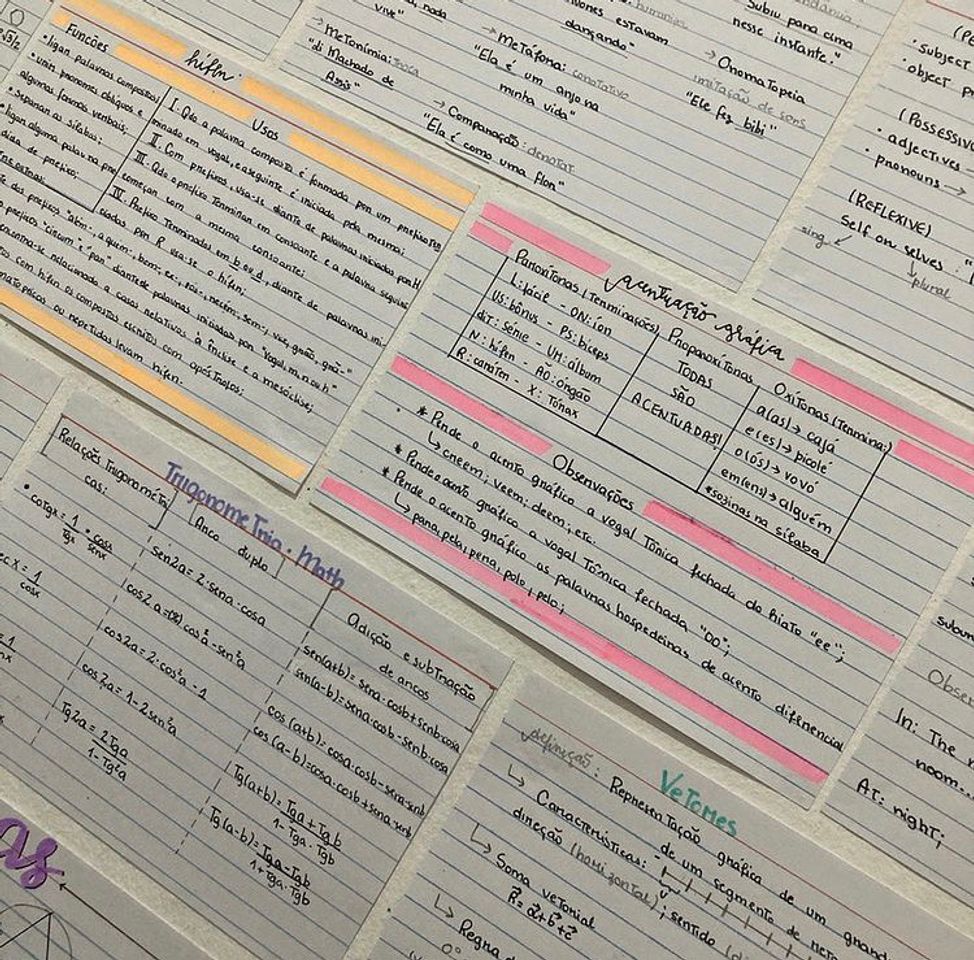 √3/2
Funções
hífen
• ligar palavras compostas
• unir pronomes oblíquos e
algumas formas verbais;
• separar as sílabas;
• ligar alguma palavra pre
dida de prefixo;
Usos
I. Qdo a palavra composta é formada por um prefixo ter
minado em vogal, e a seguinte é iniciada pela mesma;
II. Com prefixos, usa-se diante de palavras iniciadas por H
III. Qdo o prefixo terminar em consoante e a palavra seguinte
começar com a mesma consoante;
IV. Prefixo terminados em b ou d, diante de palavras ini
ciadas por R usa-se o hífen;
dos prefixos "além-, aquém-, bem-, ex-, pós-, recém-, sem-, vice, grão, grã-"
prefixos "circum" e "pan" diante de palavras iniciadas por "vogal, m, n ou h"
encontra-se relacionado a casos relativos à ênclise e a mesóclise;
com hífen os compostos escritos com apóstrofos;
ou repetidas levam hífen.
nada
vive"
→ Metonímia: troca
"li Machado de
Assis"
estavam
dançando"
→ Metáfora: conotativo
"Ela é um anjo na
minha vida"
→ Comparação: denotar
"Ela é como uma flor"
Subiu para cima
nesse instante."
→ Onomatopeia
imitação de sons
"Ele fez bibi"
• subject
• object pr
(Possessive
• adjectives
• pronouns →
(REFLEXIVE)
Self or selves : "
sing
plural
acentuação gráfica
Paroxítonas (Terminações)
L: fácil - ON: íon
US: bônus - PS: bíceps
di T: série - UM: álbum
N: hífen - ÃO: órgão
R: caráter - X: Tórax
Proparoxítonas
TODAS
SÃO
ACENTUADAS!
Oxítonas (Termina:)
a(as) → cajá
e(es) → picolé
o(ós) → vovó
em(ens) → alguém
*sozinas na sílaba
Observações
* Perde o acento gráfico a vogal tônica fechada do hiato "ee";
↳ creem; veem; deem; etc.
* Perde acento gráfico a vogal Tônica fechada "oo";
* Perde o acento gráfico as palavras hospedeiras de acento diferencial
↳ para, pela, pera, polo, pelo;
Trigonometria • Math
Relações Trigonométri
cas:
• cotgx = 1/Tgx = cosx/senx
sec x = 1/cosx
Arco
duplo
sen2a = 2·sena·cosa
cos2a = cos²a - sen²a
cos2a = 2·cos²a - 1
cos2a = 1 - 2sen²a
Tg2a = 2Tga/1-Tg²a
Adição e subtração
de arcos
sen(a+b) = sena·cosb + senb·cosa
sen(a-b) = sena·cosb - senb·cosa
cos(a+b) = cosa·cosb - sena·senb
cos(a-b) = cosa·cosb + sena·senb
Tg(a+b) = Tga + Tgb/1- Tga·Tgb
Tg(a-b) = Tga - Tgb/1+ Tga·Tgb
as
Vetores
definição: Representação gráfica de um
de um segmento de reta
↳ Características:
direção (horizontal); sentido
↳ Soma vetorial
R⃗ = a⃗ + b⃗ + c⃗
↳ Regra d
0°
In: The
room...
AT: night;